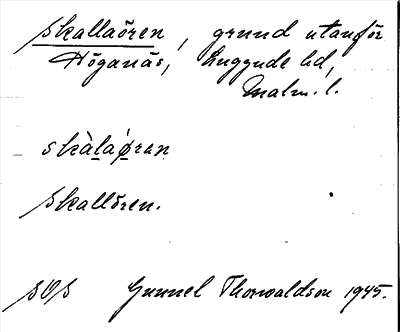 Skallaören, grund utanför
Höganäs, Luggude hd,
Malm. l.
skàlaǿran
Skallören.
SOS Gunnel Thorwaldson 1945.